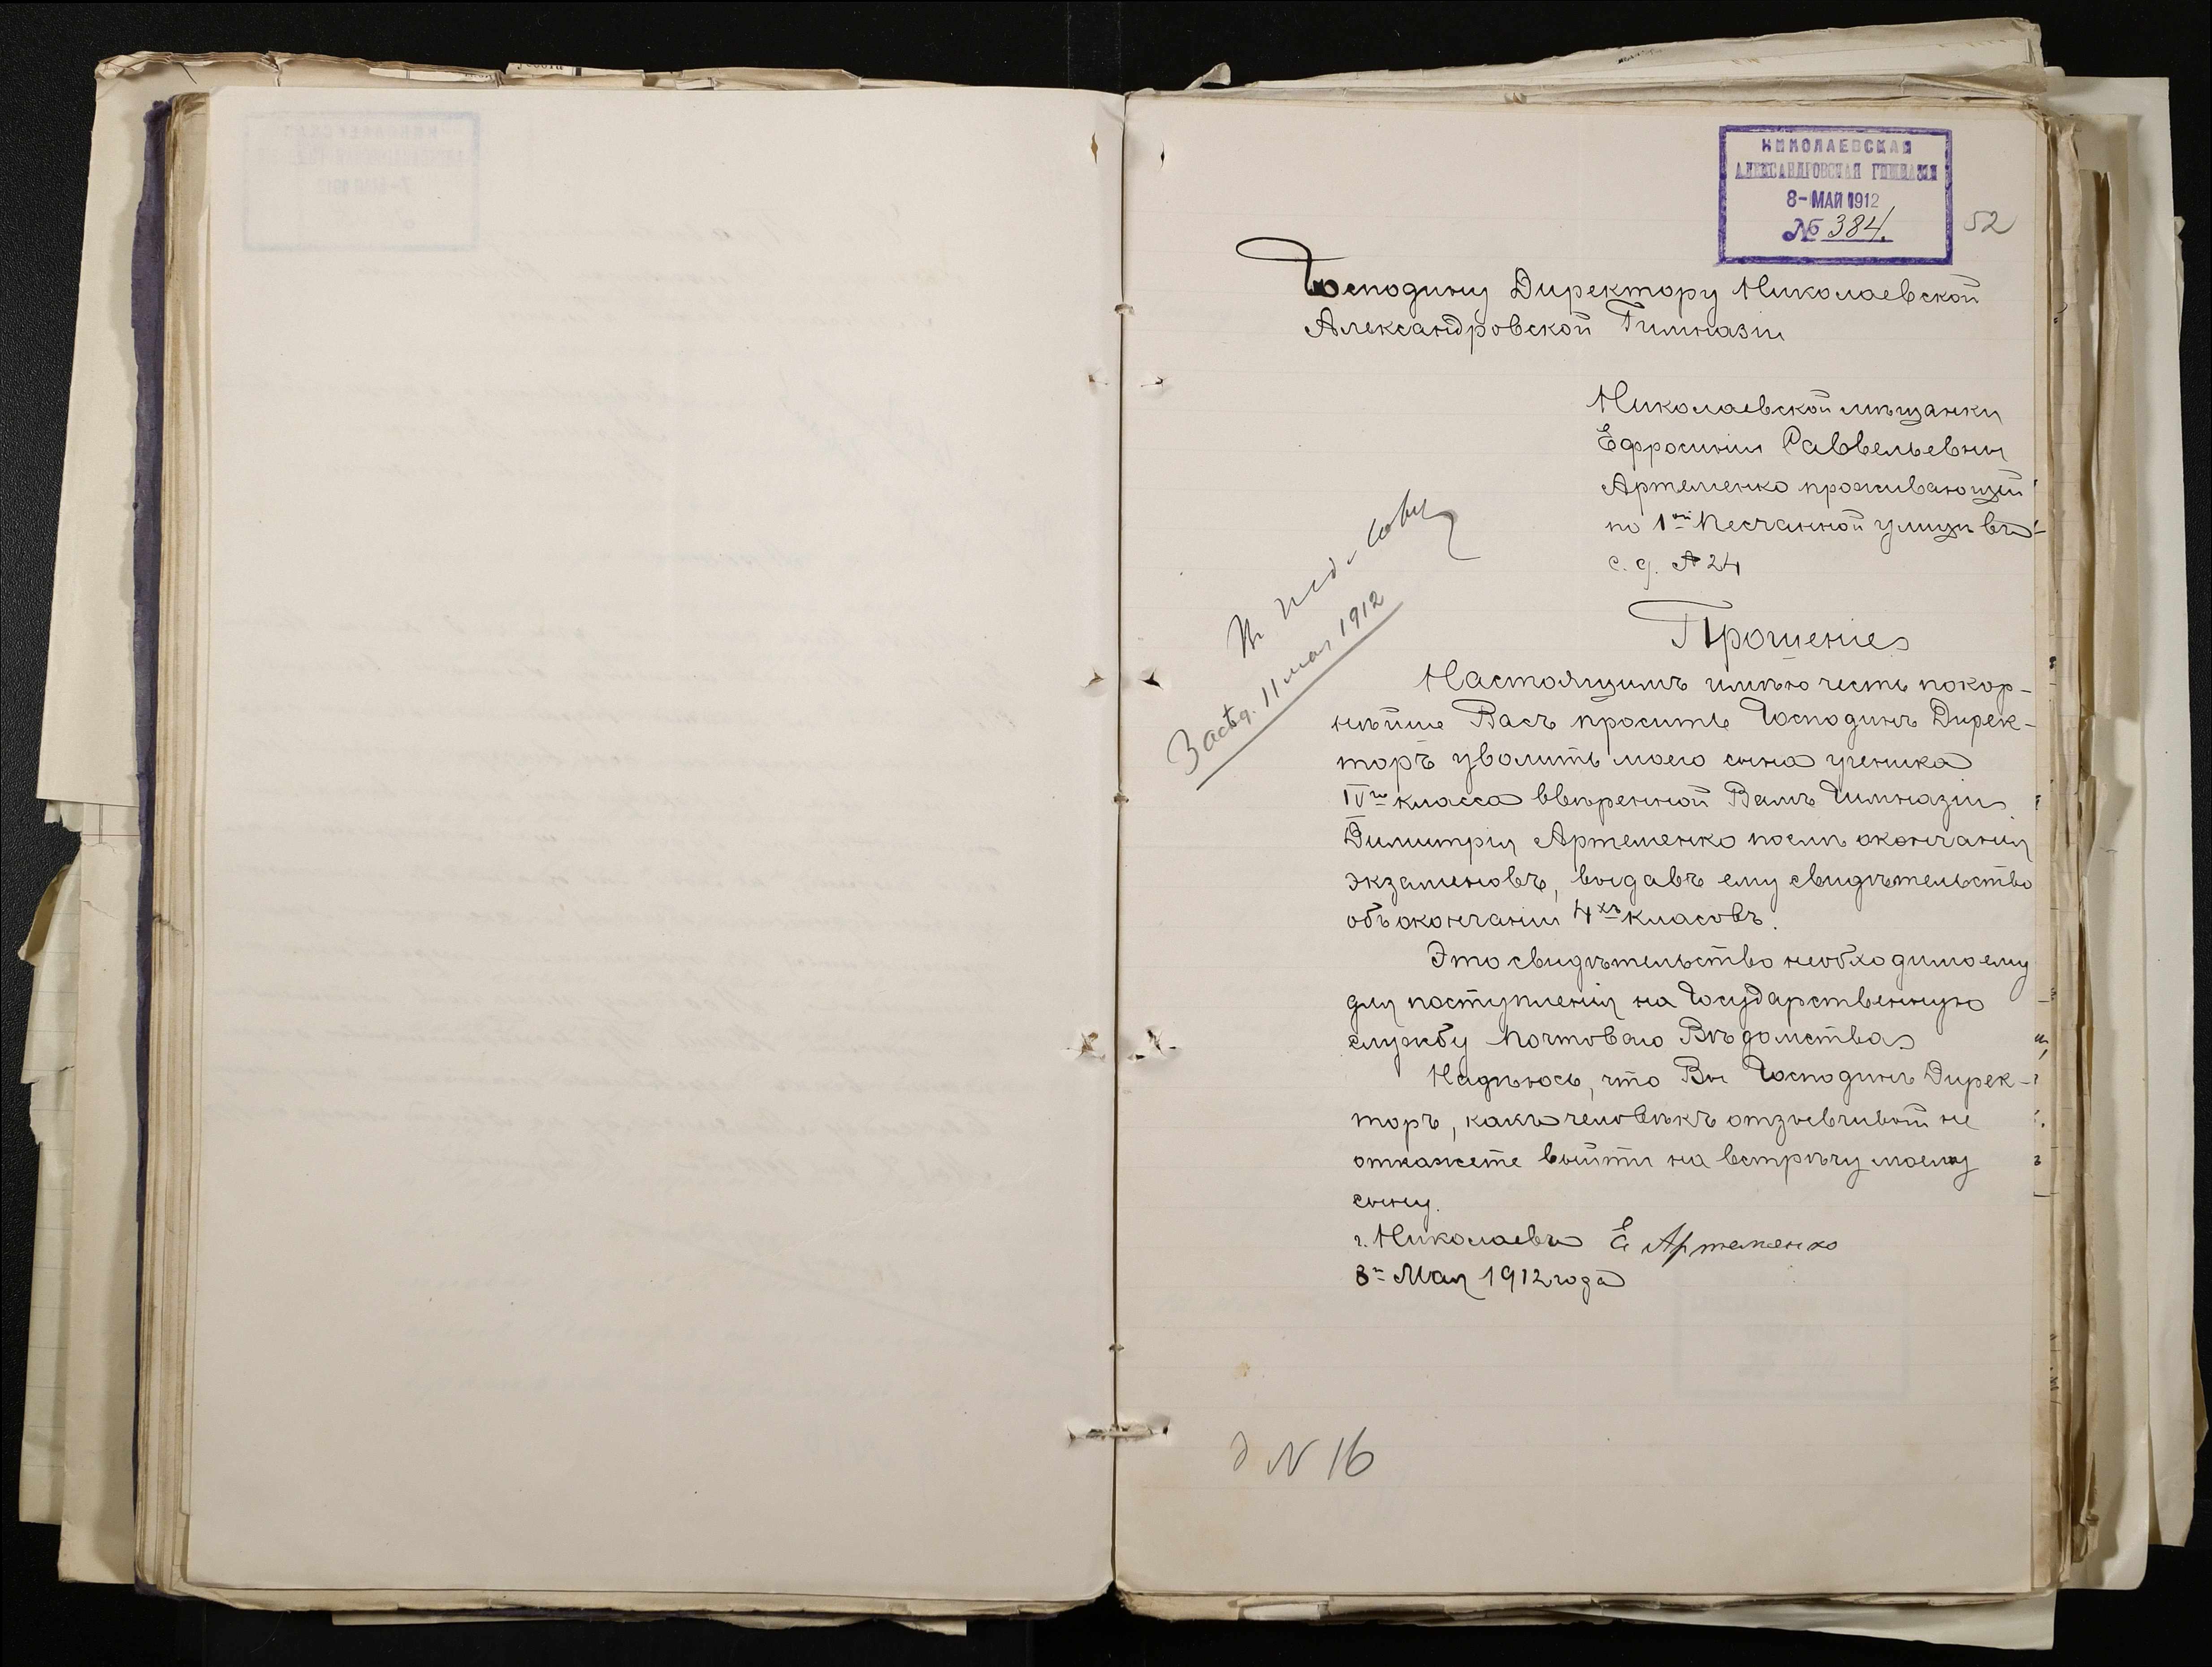 НИКОЛАЕВСКАЯ
АЛЕКСАНДРОВСКАЯ ГИМНАЗІЯ
8-МАЙ 1912
№ 384.
52
Господину Директору Николаевской
Александровской Гимназіи
Николаевской мѣщанки
Ефросиніи Савельевны
Артеменко проживающей
по 1ой Песчанной улицѣ въ
с. д. № 24
Засѣд. 11 мая 1912
Прошеніе
Настоящимъ имѣю честь покор-
нѣйше Васъ просить Господинъ Дирек-
торъ уволить моего сына ученика
IVго класса ввѣренной Вамъ Гимназіи
Димитрія Артеменко послѣ окончанія
экзаменовъ, выдавъ ему свидѣтельство
объ окончаніи 4хъ класовъ.
Это свидѣтельство необходимо ему
для поступленія на Государственную
службу Почтоваго Вѣдомства
Надѣюсь, что Вы Господинъ Дирек-
торъ, какъ человѣкъ отзывчивый не
откажете выйти на встрѣчу моему
сыну.
г. Николаевъ Е Артеменко
8го Мая 1912 года
д N 16